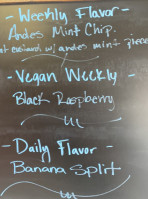 - Weekly Flavor -
Andes Mint Chip.
custard w/ andes mint pieces
- Vegan Weekly -
Black Raspberry
- Daily Flavor -
Banana Split